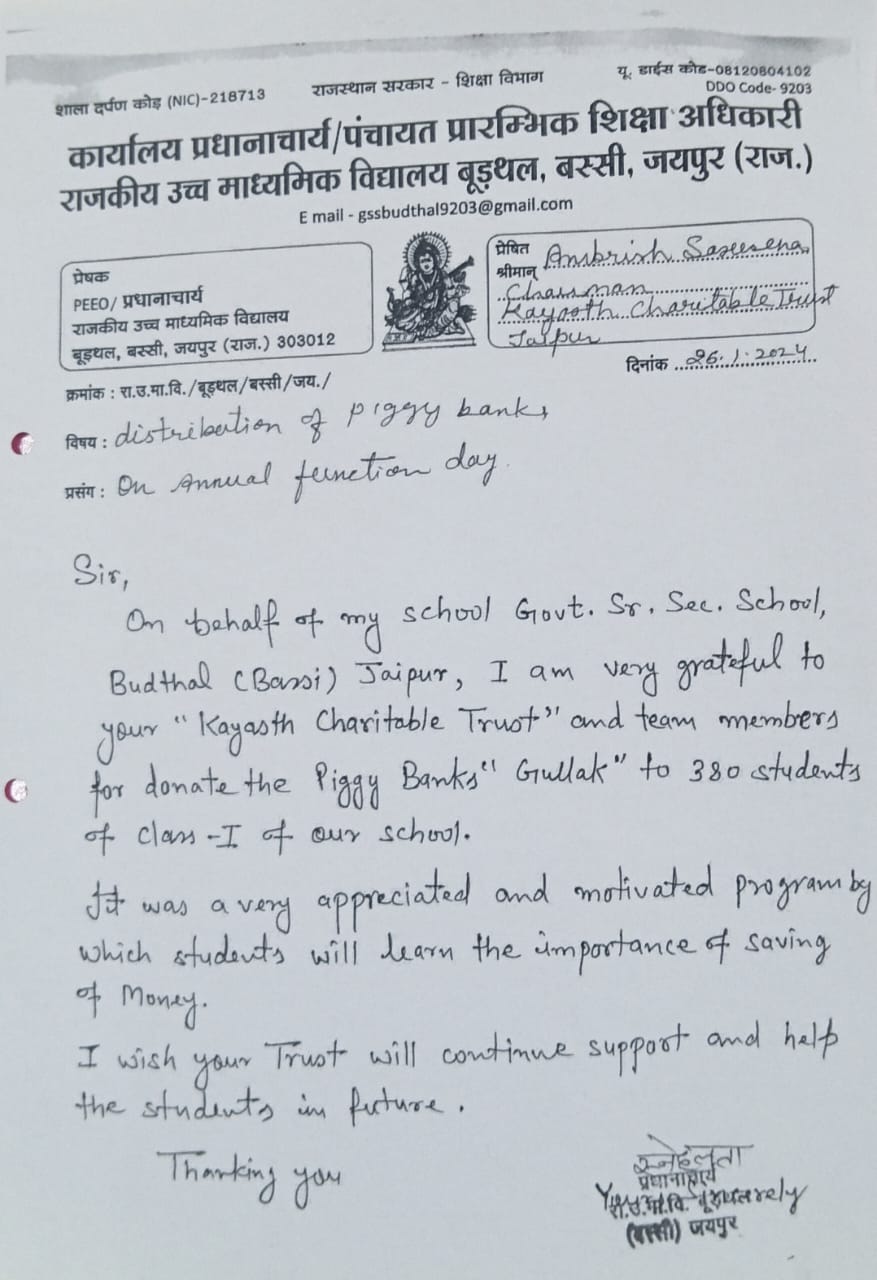 शाला दर्पण कोड़ (NIC)-218713
राजस्थान सरकार - शिक्षा विभाग
यू. डाईस कोड-08120804102
DDO Code- 9203
कार्यालय प्रधानाचार्य/पंचायत प्रारम्भिक शिक्षा अधिकारी
राजकीय उच्च माध्यमिक विद्यालय बूड़थल, बस्सी, जयपुर (राज.)
E mail - gssbudthal9203@gmail.com
प्रेषक
PEEO/ प्रधानाचार्य
राजकीय उच्च माध्यमिक विद्यालय
बूड़थल, बस्सी, जयपुर (राज.) 303012
प्रेषित
श्रीमान् Ambrish Saxena
Chairman
Kayasth Charitable Trust
Jaipur
दिनांक 26.1.2024
क्रमांक : रा.उ.मा.वि./बूड़थल/बस्सी/जय./
विषय : distribution of piggy banks
प्रसंग : On Annual function day.
Sir,
On behalf of my school Govt. Sr. Sec. School,
Budthal (Bassi) Jaipur, I am very grateful to
your "Kayasth Charitable Trust" and team members
for donate the Piggy Banks "Gullak" to 380 students
of class-I of our school.
It was a very appreciated and motivated program by
which students will learn the importance of saving
of Money.
I wish your Trust will continue support and help
the students in future.
Thanking you
स्नेहलता
प्रधानाचार्य
रा.उ.मा.वि.
(बस्सी) जयपुर